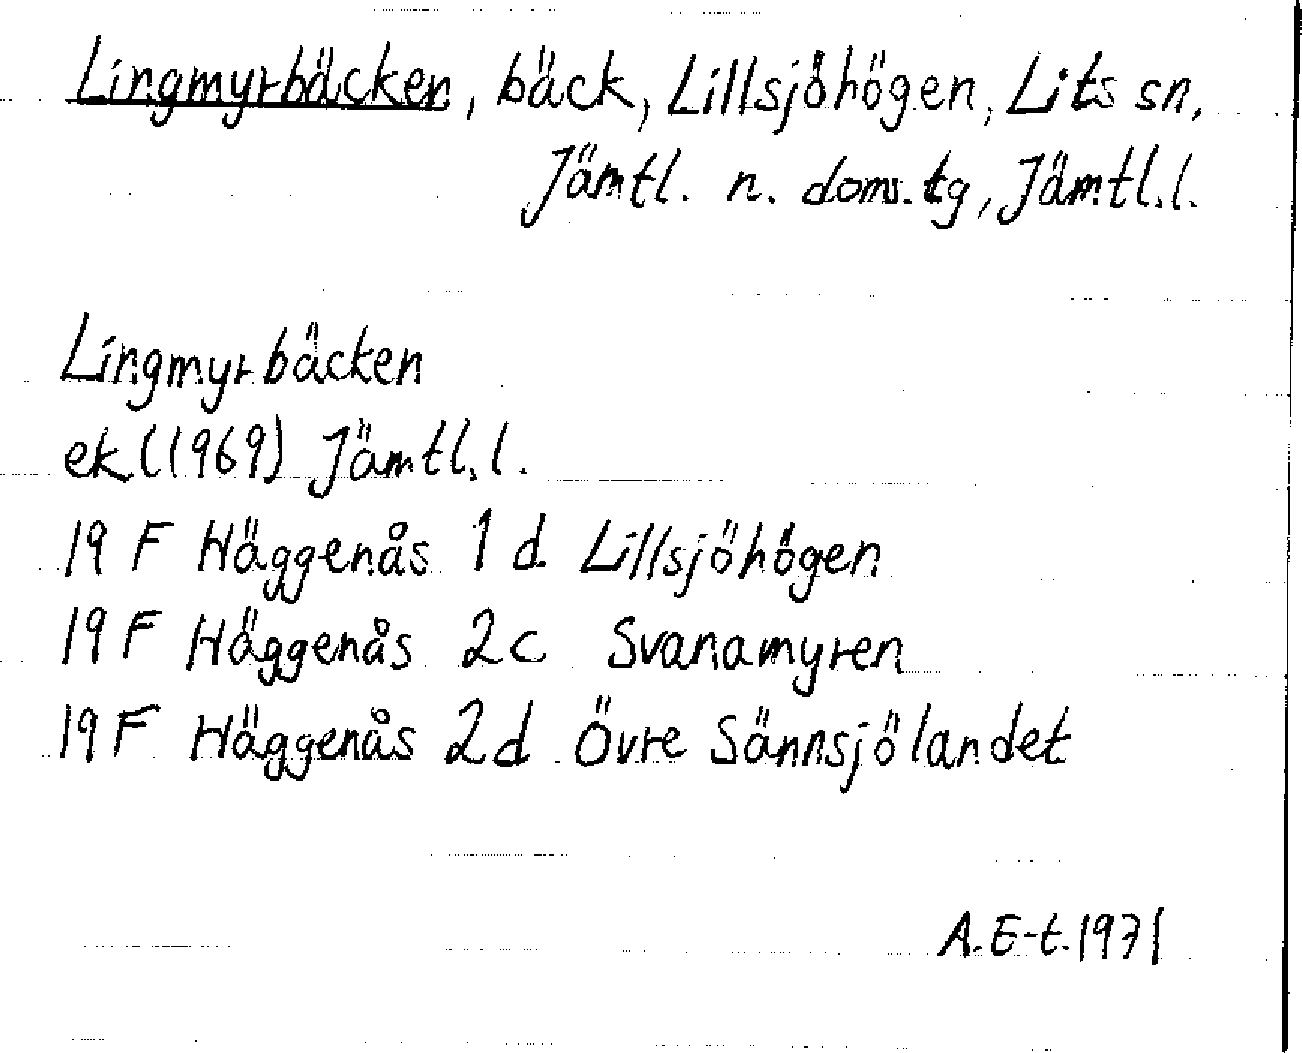 Lingmyrbäcken, bäck, Lillsjöhögen, Lits sn,
Jämtl. n. doms.tg, Jämtl.l.
Lingmyrbäcken
ek (1969) Jämtl.l.
19 F Häggenås 1 d Lillsjöhögen
19 F Häggenås 2c Svanamyren
19 F Häggenås 2d Övre Sännsjölandet
A.E-t.1971